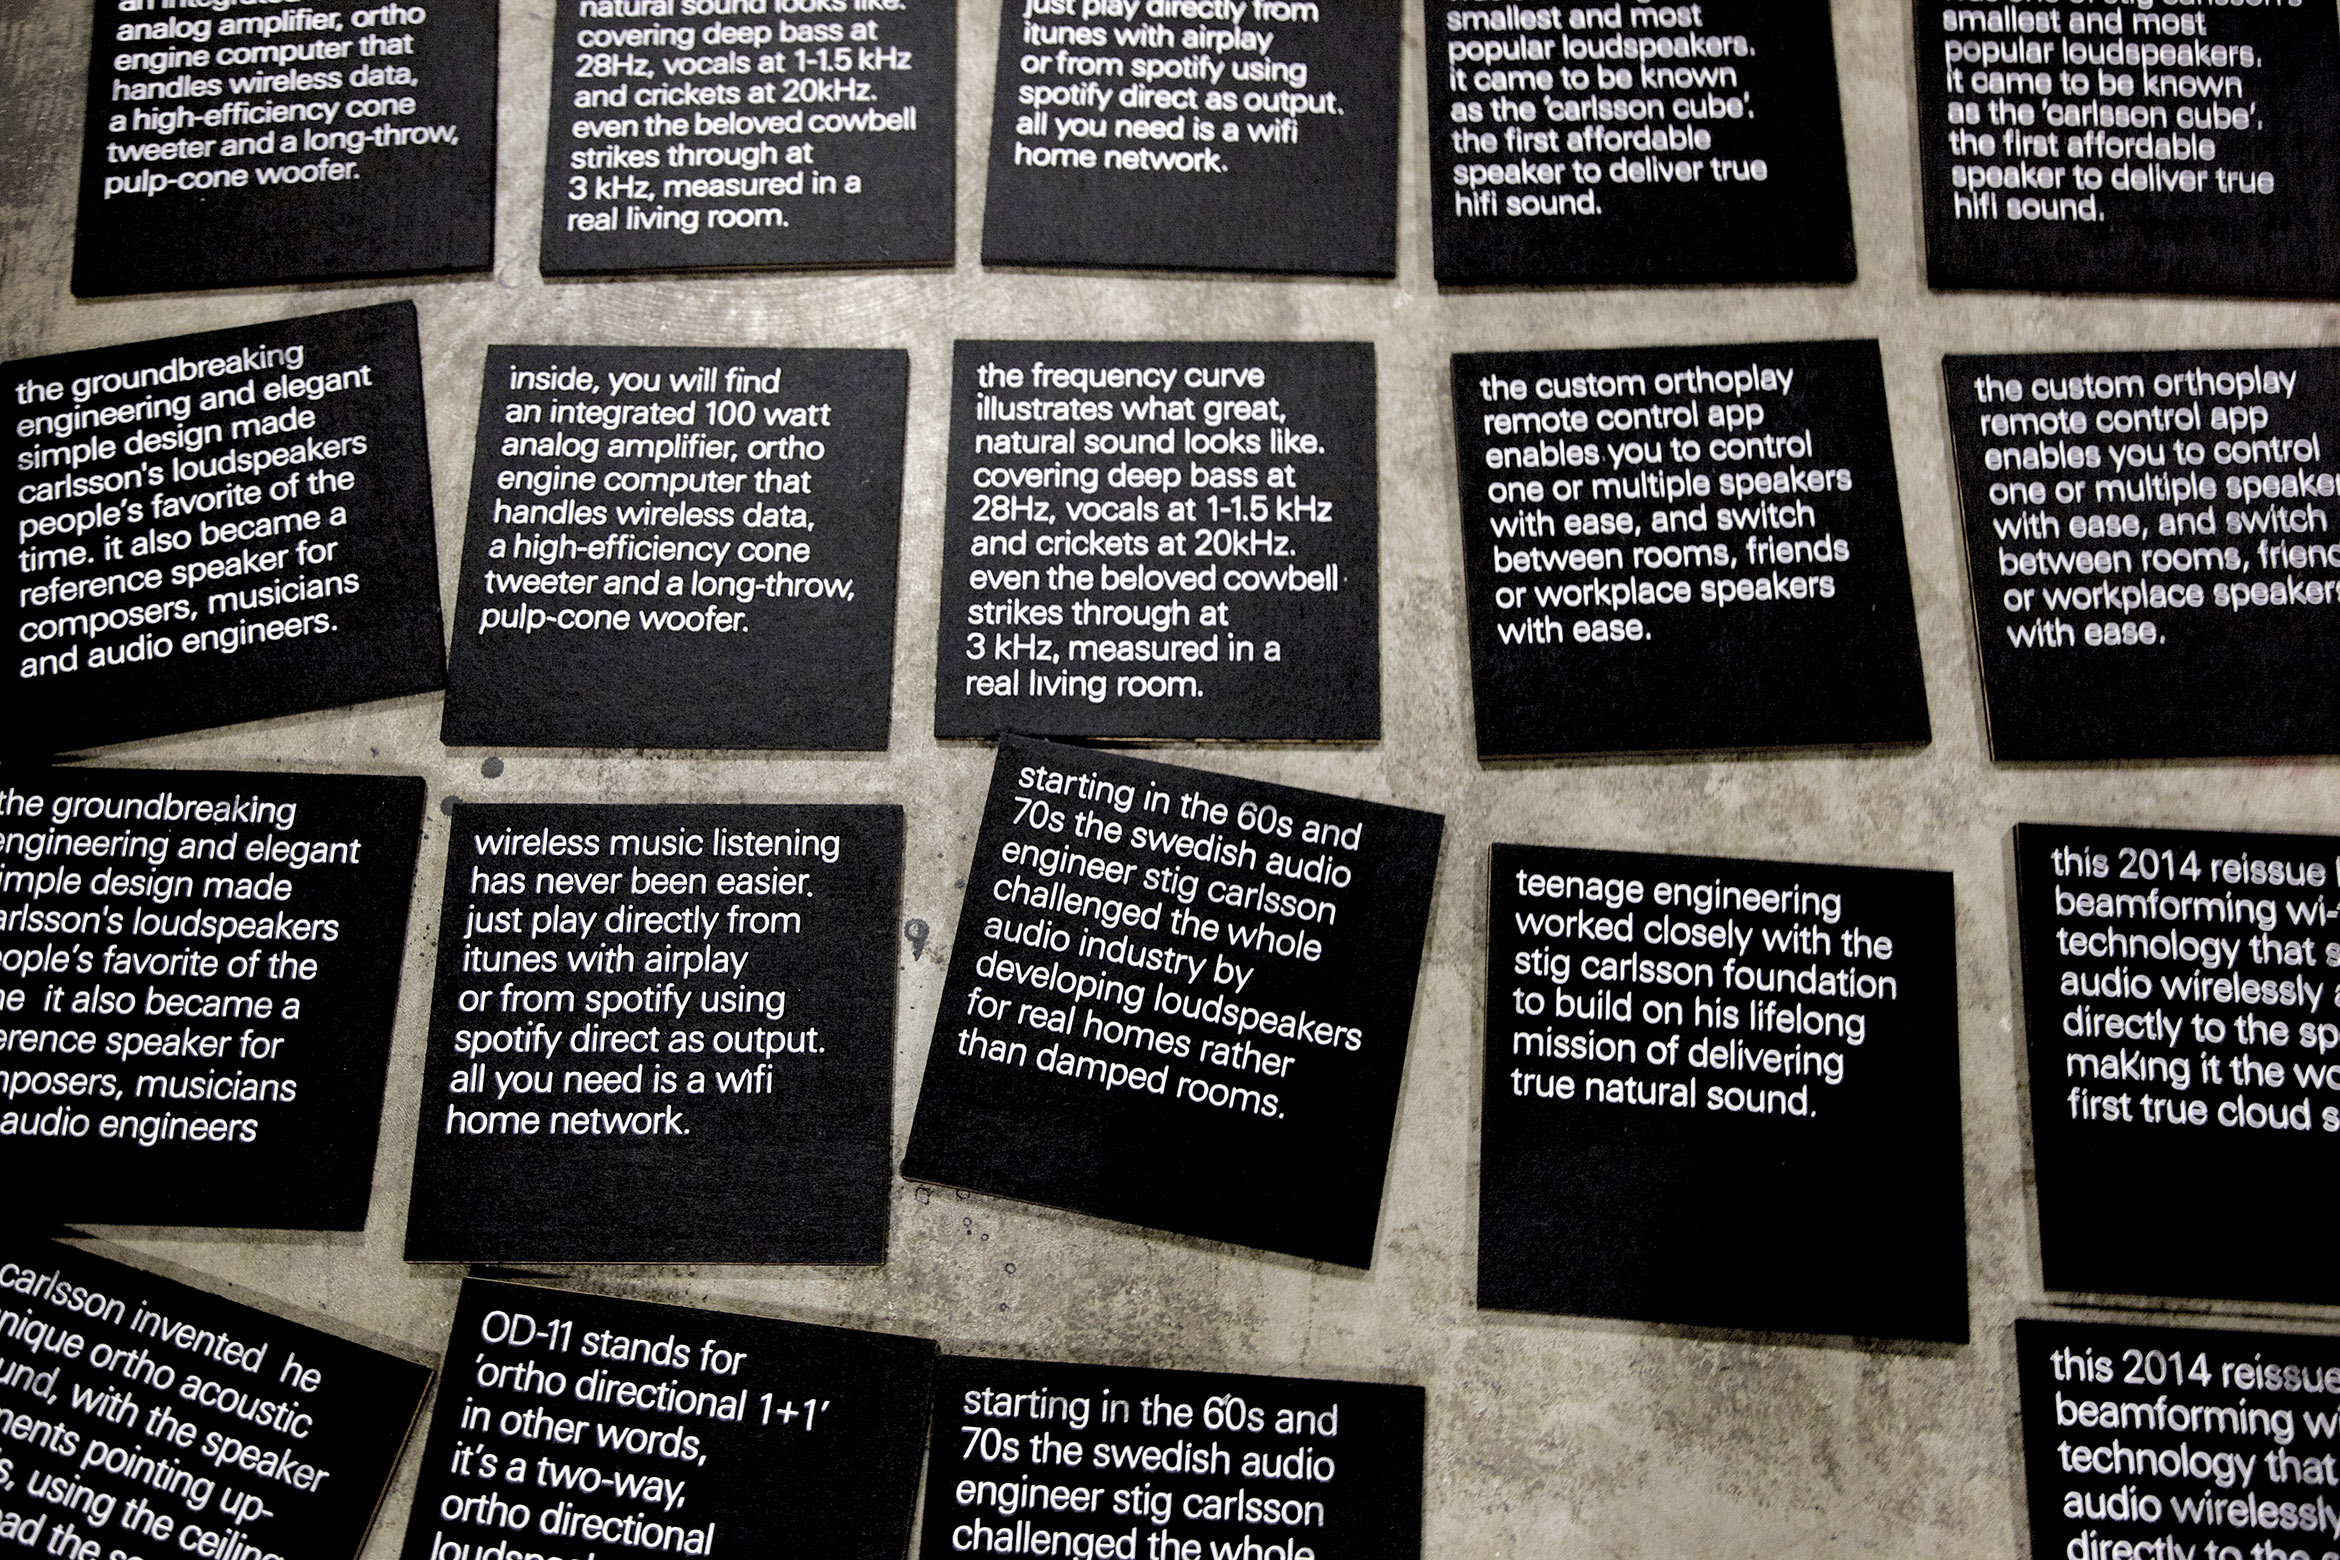 analog amplifier, ortho
engine computer that
handles wireless data,
a high-efficiency cone
tweeter and a long-throw,
pulp-cone woofer.
natural sound looks like.
covering deep bass at
28Hz, vocals at 1-1.5 kHz
and crickets at 20kHz.
even the beloved cowbell
strikes through at
3 kHz, measured in a
real living room.
just play directly from
itunes with airplay
or from spotify using
spotify direct as output.
all you need is a wifi
home network.
smallest and most
popular loudspeakers.
it came to be known
as the 'carlsson cube'.
the first affordable
speaker to deliver true
hifi sound.
smallest and most
popular loudspeakers.
it came to be known
as the 'carlsson cube'.
the first affordable
speaker to deliver true
hifi sound.
the groundbreaking
engineering and elegant
simple design made
carlsson's loudspeakers
people's favorite of the
time. it also became a
reference speaker for
composers, musicians
and audio engineers.
inside, you will find
an integrated 100 watt
analog amplifier, ortho
engine computer that
handles wireless data,
a high-efficiency cone
tweeter and a long-throw,
pulp-cone woofer.
the frequency curve
illustrates what great,
natural sound looks like.
covering deep bass at
28Hz, vocals at 1-1.5 kHz
and crickets at 20kHz.
even the beloved cowbell
strikes through at
3 kHz, measured in a
real living room.
the custom orthoplay
remote control app
enables you to control
one or multiple speakers
with ease, and switch
between rooms, friends
or workplace speakers
with ease.
the custom orthoplay
remote control app
enables you to control
one or multiple
with ease, and switch
between rooms,
or workplace
with ease.
the groundbreaking
engineering and elegant
design made
loudspeakers
favorite of the
it also became a
speaker for
musicians
audio engineers
wireless music listening
has never been easier.
just play directly from
itunes with airplay
or from spotify using
spotify direct as output.
all you need is a wifi
home network.
starting in the 60s and
70s the swedish audio
engineer stig carlsson
challenged the whole
audio industry by
developing loudspeakers
for real homes rather
than damped rooms.
teenage engineering
worked closely with the
stig carlsson foundation
to build on his lifelong
mission of delivering
true natural sound.
this 2014 reissue
beamforming
technology that
audio wirelessly
directly to the
making it the
first true cloud
carlsson invented he
ortho acoustic
with the speaker
pointing up-
using the ceiling
the
OD-11 stands for
'ortho directional 1+1'
in other words,
it's a two-way,
ortho directional
starting in the 60s and
70s the swedish audio
engineer stig carlsson
challenged the whole
this 2014 reissue
beamforming
technology that
audio wirelessly
directly to the